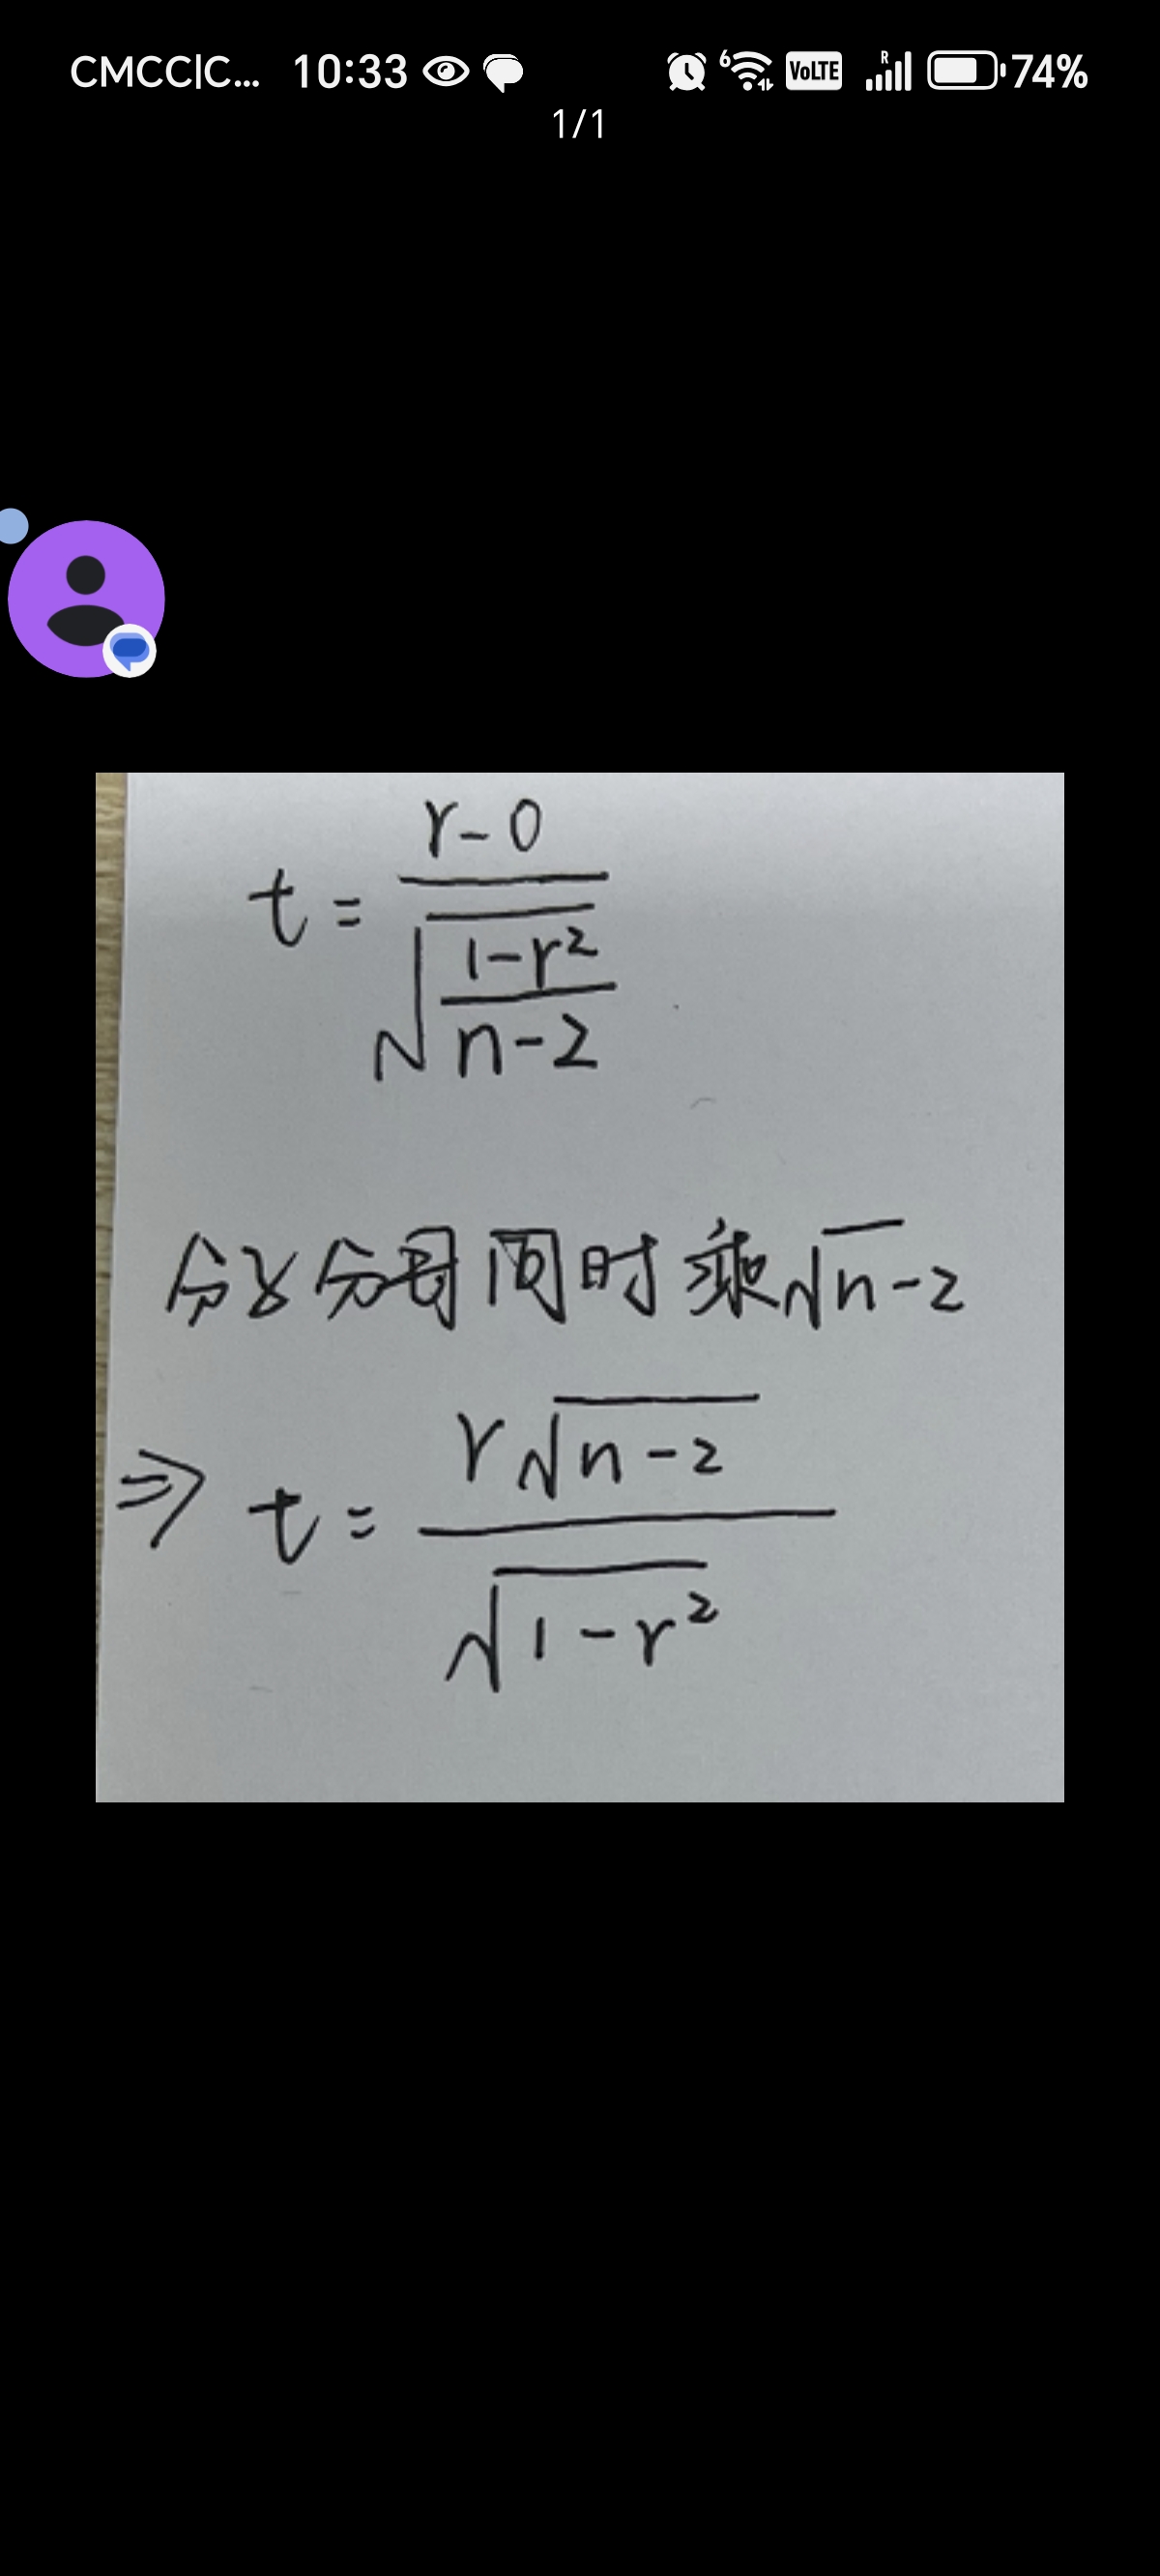 CMCC|C... 10:33 6 VoLTE R 74%
1/1
t = (r-0) / √((1-r²)/(n-2))
分子分母同时乘√n-2
⇒ t = r√(n-2) / √(1-r²)